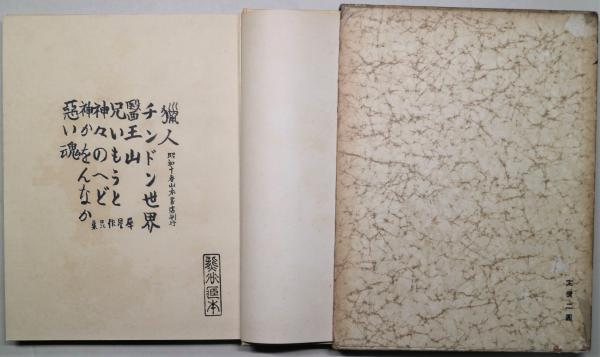 獵人
昭和十年山本書店刊行
チンドン世界
醫王山
兄いもうと
神々のへど
神かをんなか
惡い魂
犀星作品集
定價二圓